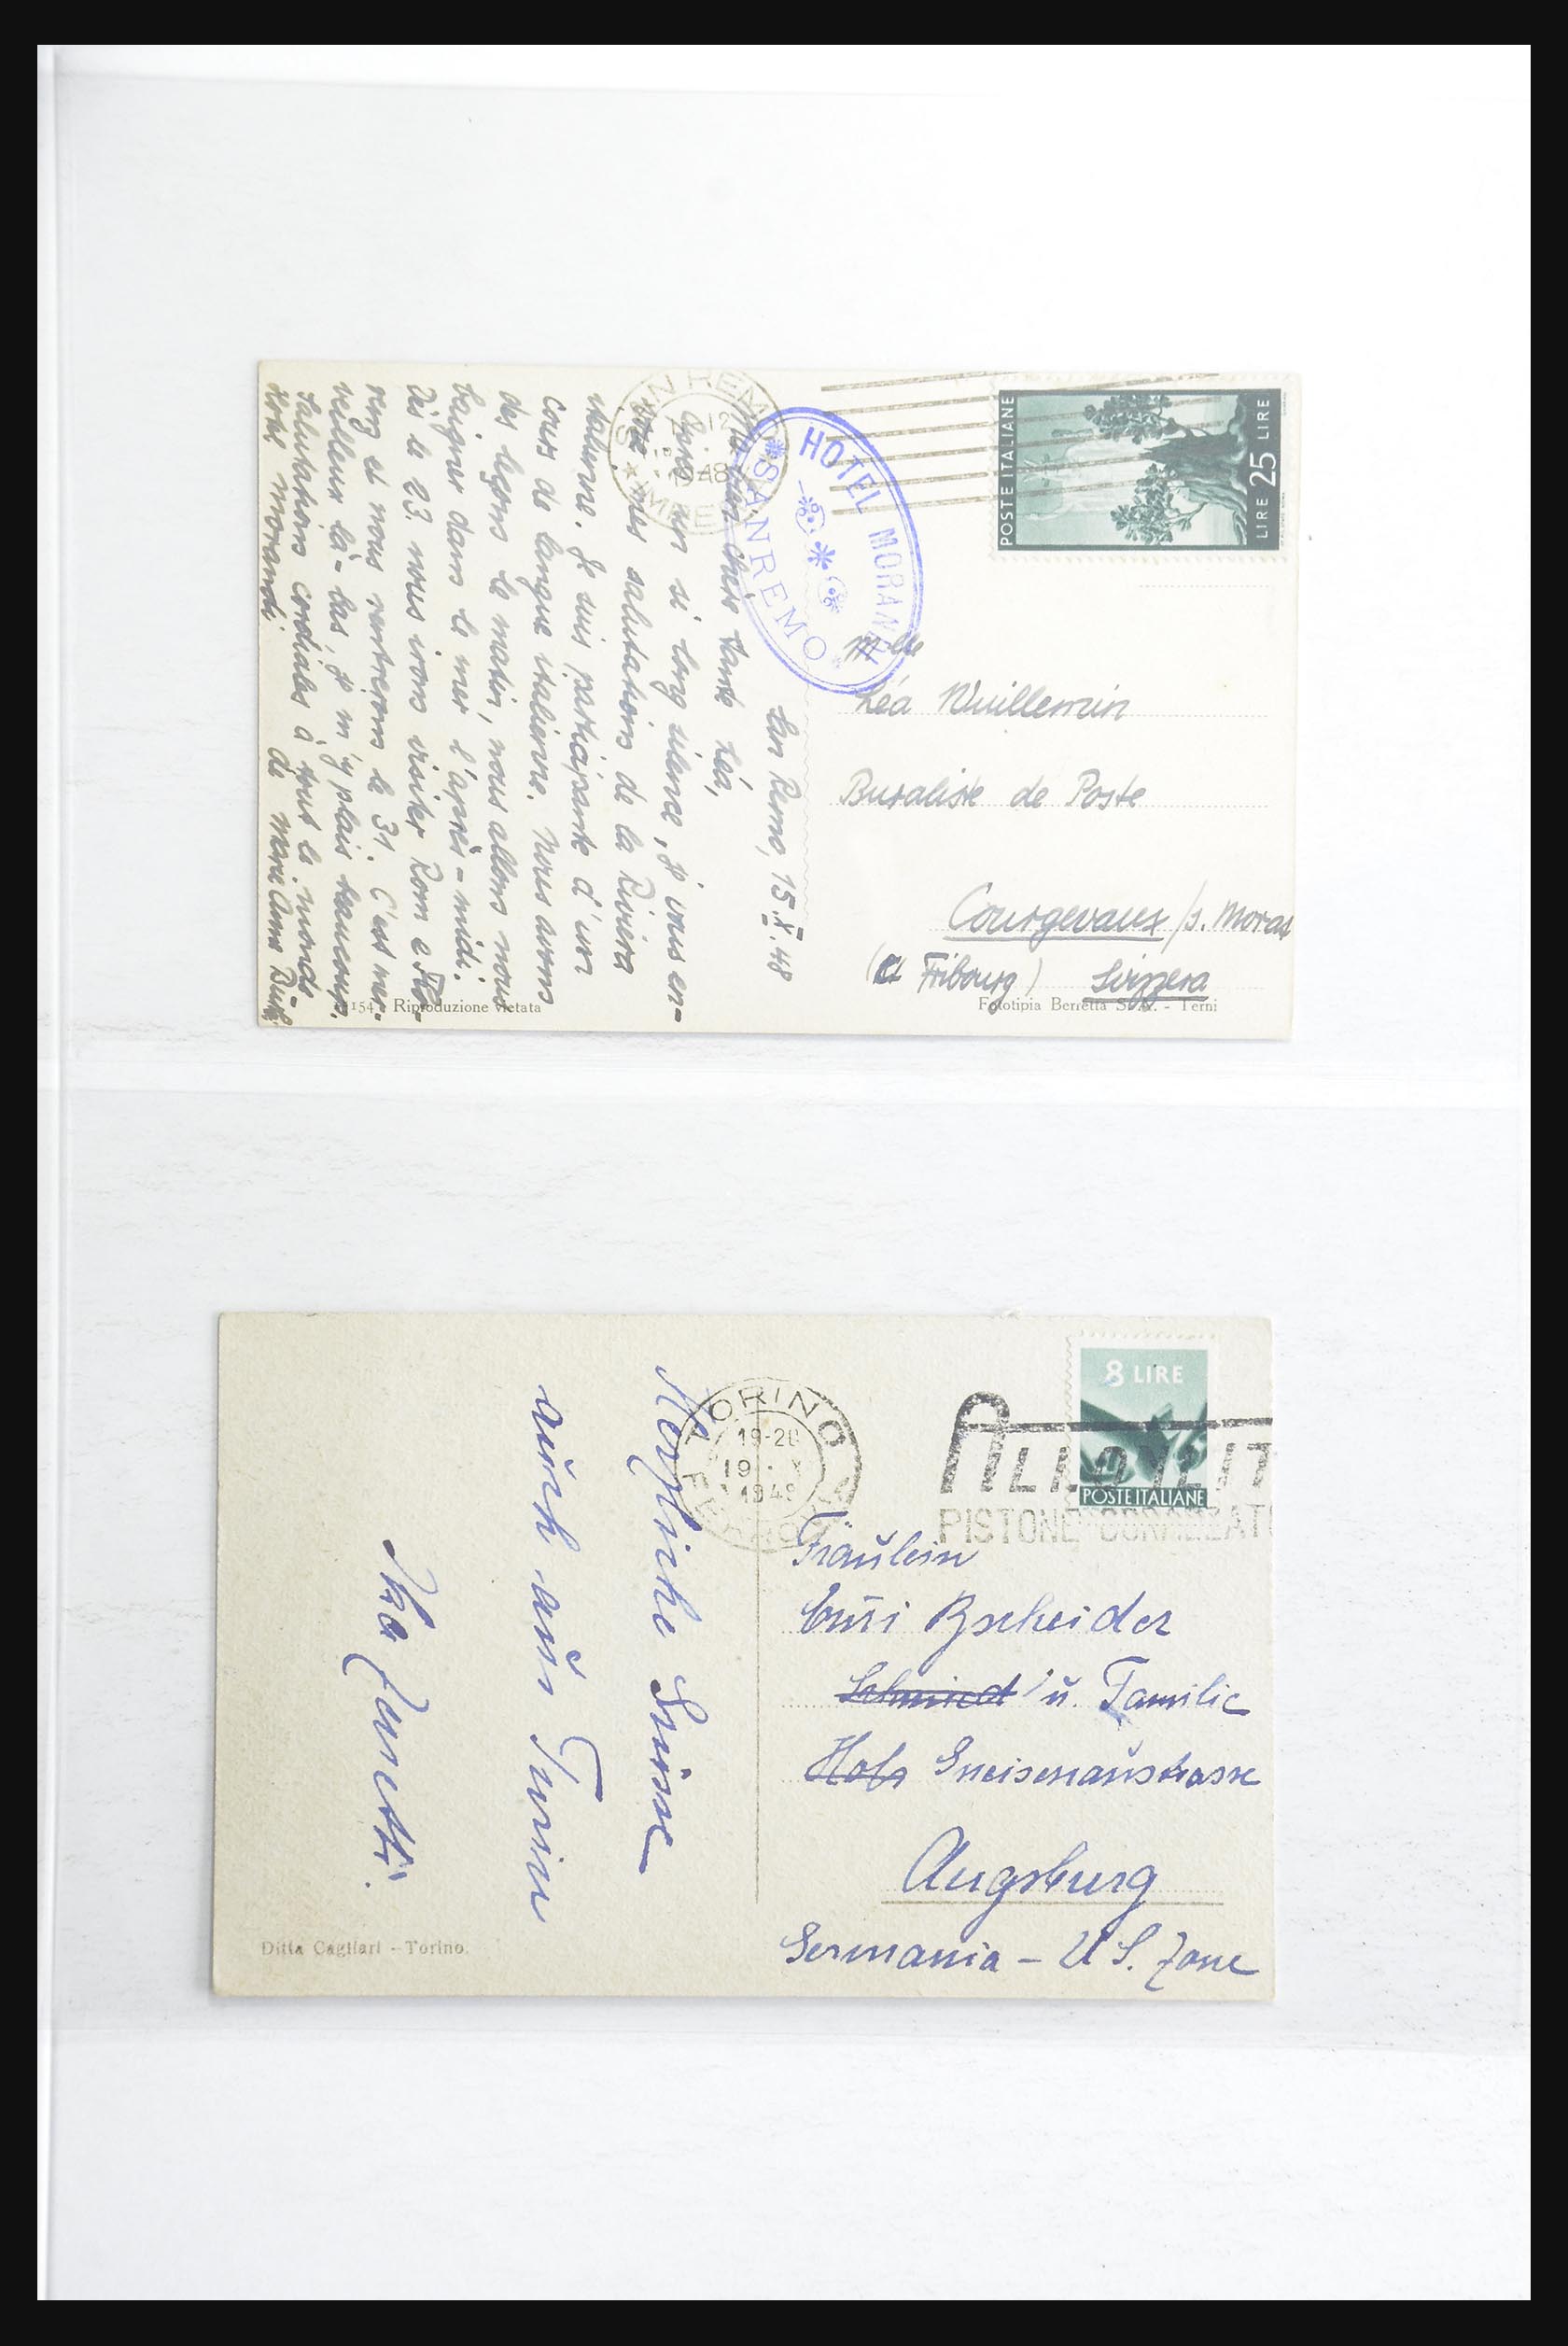 SAN REMO
1948
HOTEL MORANDI
SANREMO
POSTE ITALIANE
LIRE 25 LIRE
San Remo, 15.X.48
Ma bien chère tante Léa,
Après un si long silence, je vous en-
voie mes salutations de la Riviera
italienne. Je suis participante d'un
cours de langue italienne. Nous avons
des leçons le matin, nous allons nous
baigner dans la mer l'après-midi.
Dès le 23 nous irons visiter Rom e Flo-
renz et nous rentrerons le 31. C'est mer-
veilleux là-bas, je m'y plais beaucoup.
Salutations cordiales à tout le monde
de Marie Anne
Hotel Morandi
Mlle
Léa Wuillemin
Buraliste de Poste
Courgevaux /s. Morat
(Ct Fribourg) Svizzera
154 - Riproduzione vietata
Fototipia Berretta S.A. - Terni
8 LIRE
POSTE ITALIANE
TORINO
FERROVIA
19-20
19 X
1949
PISTONE CORAZZAT
Herzliche Grüsse
auch aus Turin
Zanetti
Fräulein
Bscheider
Schmied u. Familie
Gneisenaustrasse
Augsburg
Germania - U.S. Zone
Ditta Cagliari - Torino